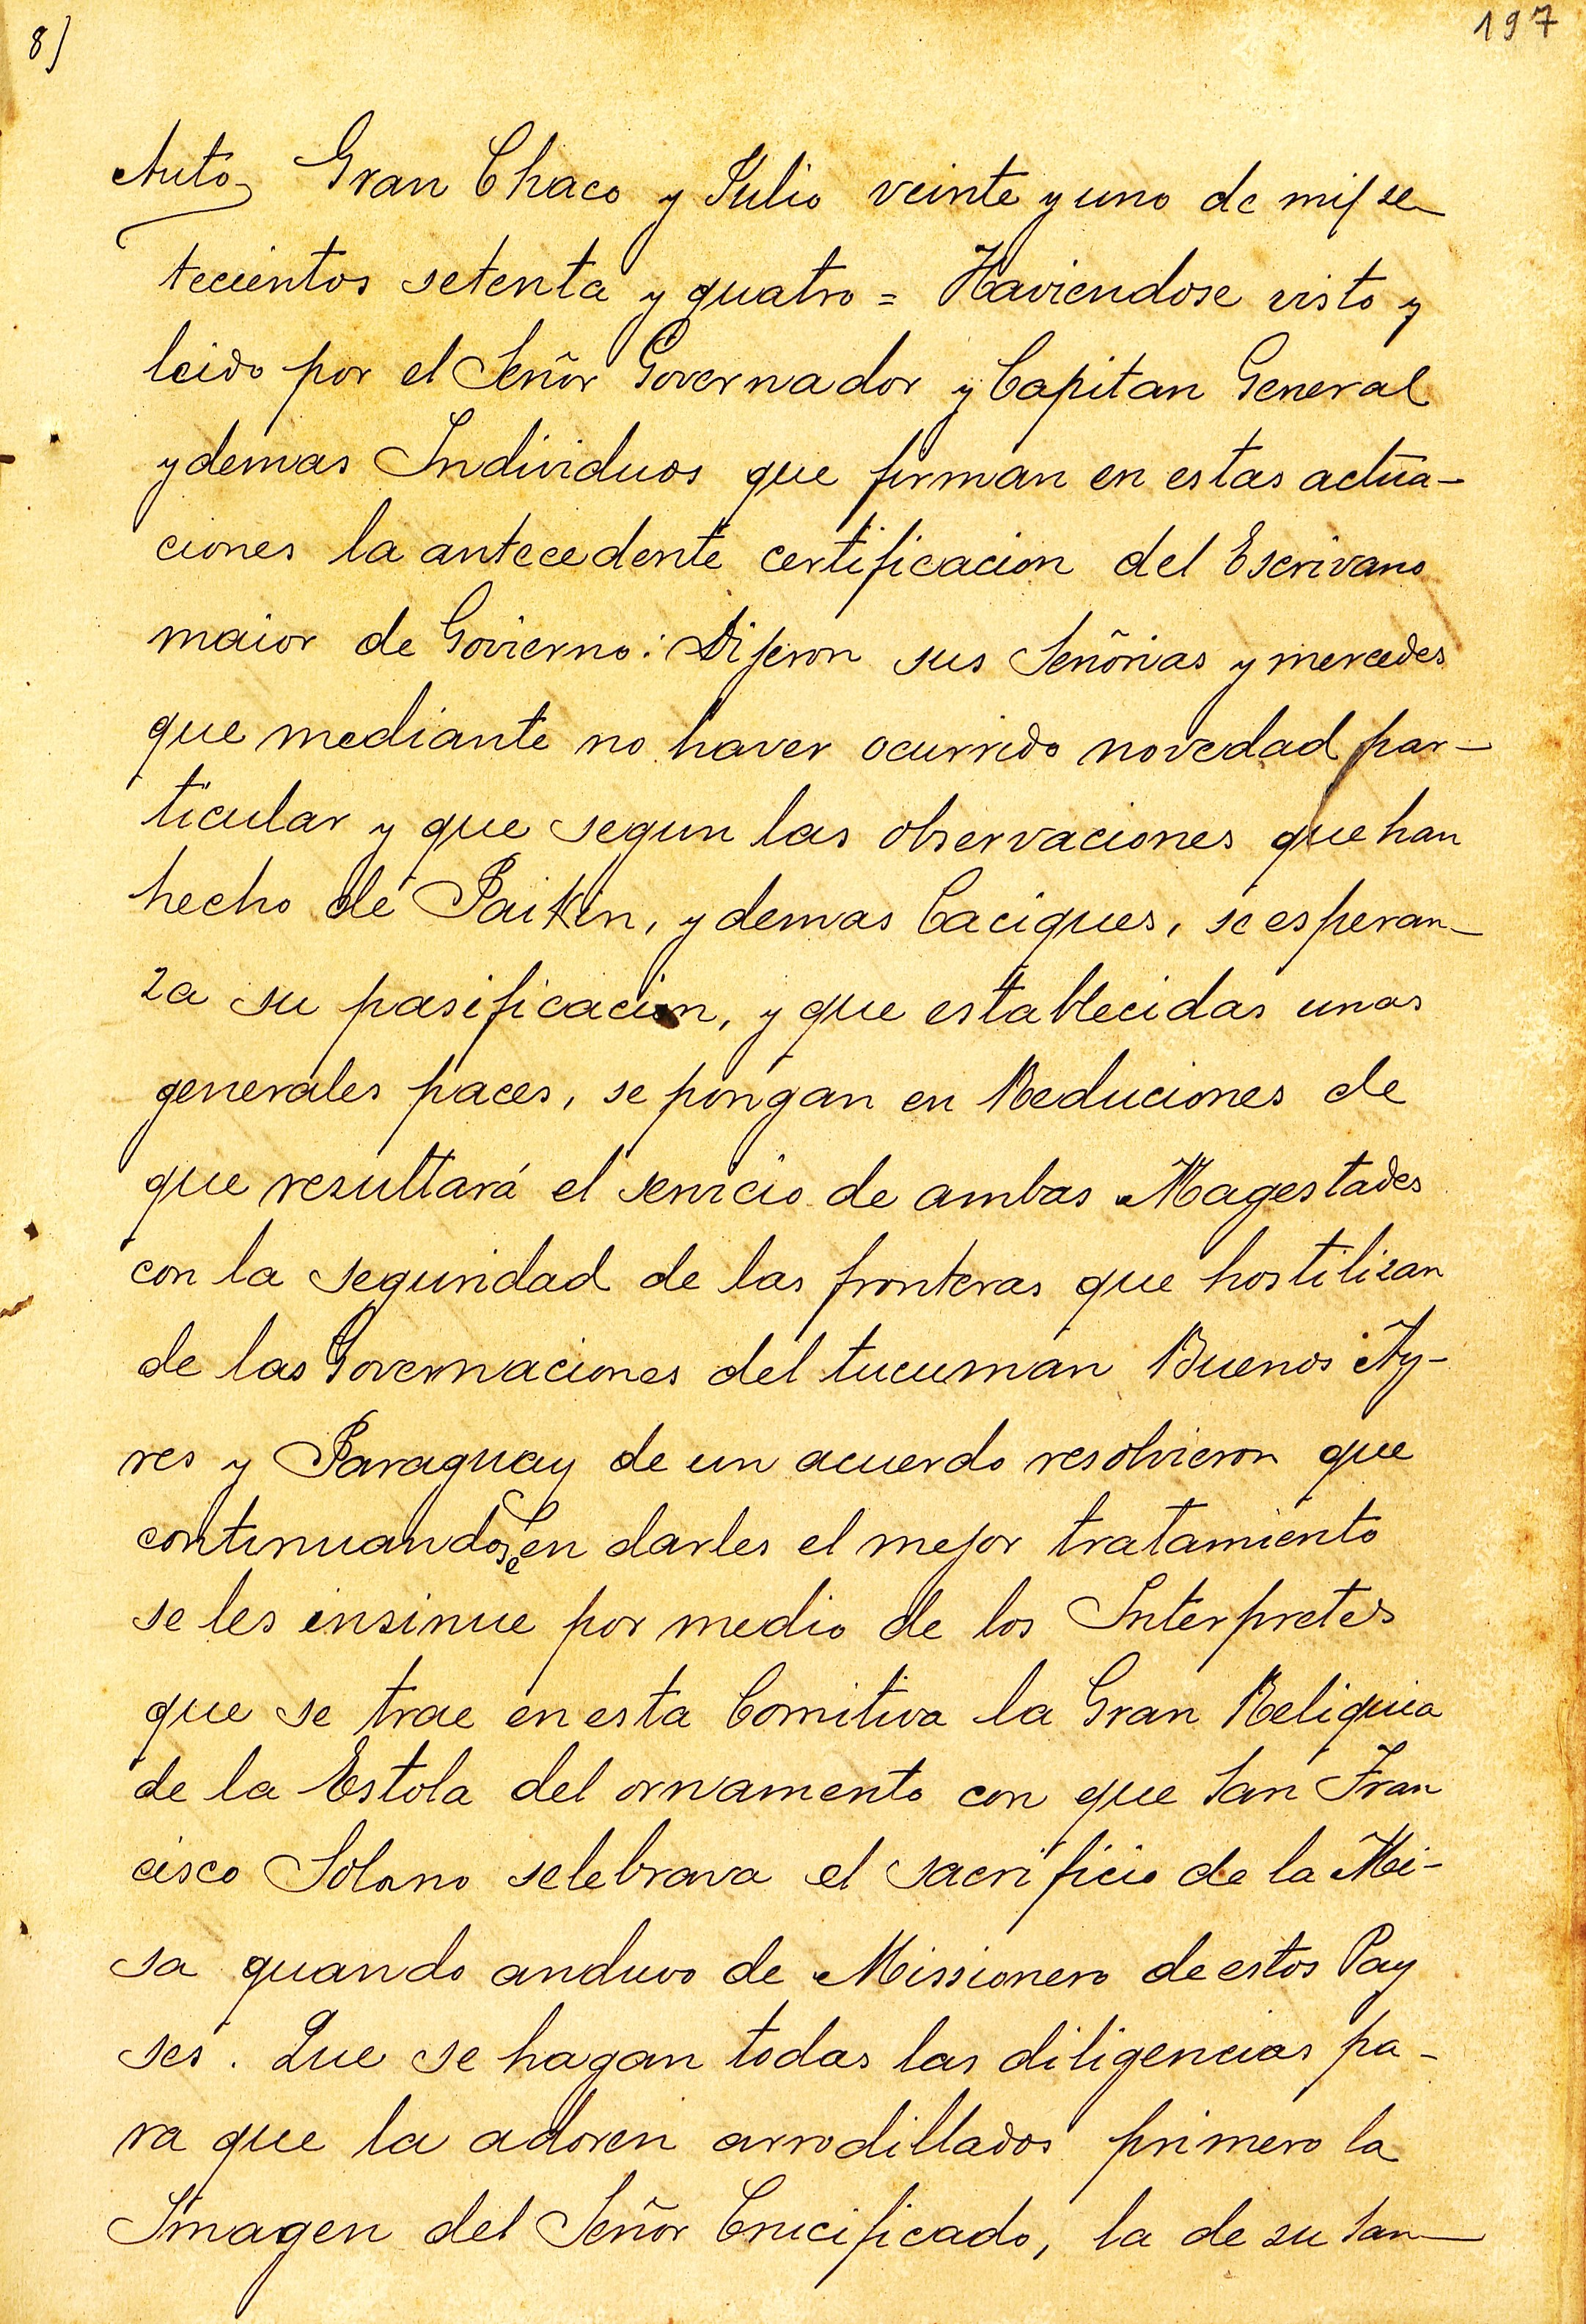 8)
197
Auto, Gran Chaco y Julio veinte y uno de mil se
tecientos setenta y quatro = Haviendose visto y
leido por el Señor Governador y Capitan General
y demas Individuos que firman en estas actua-
ciones la antecedente certificacion del Escrivano
maior de Govierno: Dijeron sus Señorias y mercedes
que mediante no haver ocurrido novedad par-
ticular y que segun las observaciones que han
hecho de Paikin, y demas Caciques, se esperan-
za su pasificacion, y que establecidas unas
generales paces, se pongan en Reduciones de
que resultará el servicio de ambas Magestades
con la seguridad de las fronteras que hostilizan
de las Governaciones del tucuman Buenos Ay-
res y Paraguay de un acuerdo resolvieron que
continuandose en darles el mejor tratamiento
se les insinue por medio de los Interpretes
que se trae en esta Comitiva la Gran Reliquia
de la Estola del ornamento con que San Fran
cisco Solano selebrava el sacrificio de la Mi-
sa quando anduvo de Missionero de estos Pay
ses. Que se hagan todas las diligencias pa-
ra que la adoren arrodillados primero la
Imagen del Señor Crucificado, la de su San-